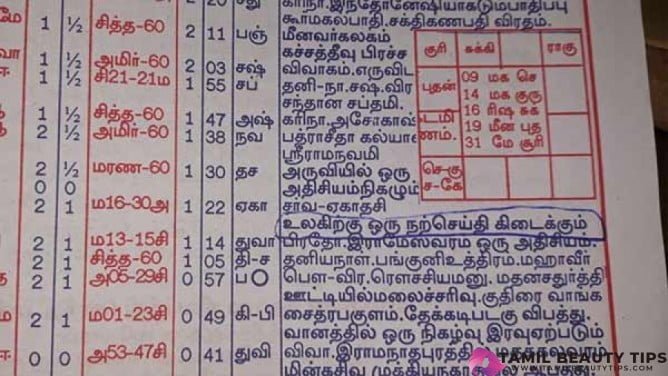 மே 1 ½ சித்த-60 2 11 பஞ் மீனவர்கலகம்
கூர்மகல்பாதி.சக்திகணபதி விரதம்.
1 ½ அமிர்-60 2 03 சஷ் விவாகம்.எருவிட
கச்சத்தீவு பிரச்ச
1 ½ சி21-21ம 1 55 சப் தனி-நா.சஷ்.விர
சந்தான சப்தமி.
1 ½ சித்த-60 1 47 அஷ் கரிநா.அசோகாஷ்
2 1 அமிர்-60 1 38 நவ பத்ராசீதா கல்யா
ஸ்ரீராமநவமி
2 ½ மரண-60 1 30 தச அருவியில் ஒரு
0 0 அதிசியம்நிகழும்
2 1 ம16-30அ 1 22 ஏகா சர்வ-ஏகாதசி
உலகிற்கு ஒரு நற்செய்தி கிடைக்கும்
2 1 ம13-15சி 1 14 துவா பிரதோ.இராமேஸ்வரம் ஒரு அதிசியம்.
2 1 சித்த-60 1 05 தி-ச தனியநாள்.பங்குனிஉத்திரம்.மஹாவீர்
2 1 அ05-29சி 0 57 ப பௌ-விர.ரௌச்சியமனு. மதனசதுர்த்தி
ஊட்டியில்மலைச்சரிவு.குதிரை வாங்க
2 1 ம01-23சி 0 49 கி-பி சைத்ரபகுளம்.தேக்கடிபடகு விபத்து.
வானத்தில் ஒரு நிகழ்வு இரவுஏற்படும்
0 0 அ53-47சி 0 41 துவி விவா.இராமநாதபுரத்தில்
குரி சுக்கி ராகு
புதன் 09 மக செ
14 மக குரு
16 ரிஷ சுக
19 மீன புத
31 மே சூரி
செ-கு
ச-கே
TAMIL BEAUTY TIPS
WWW.TAMILBEAUTYTIPS.COM